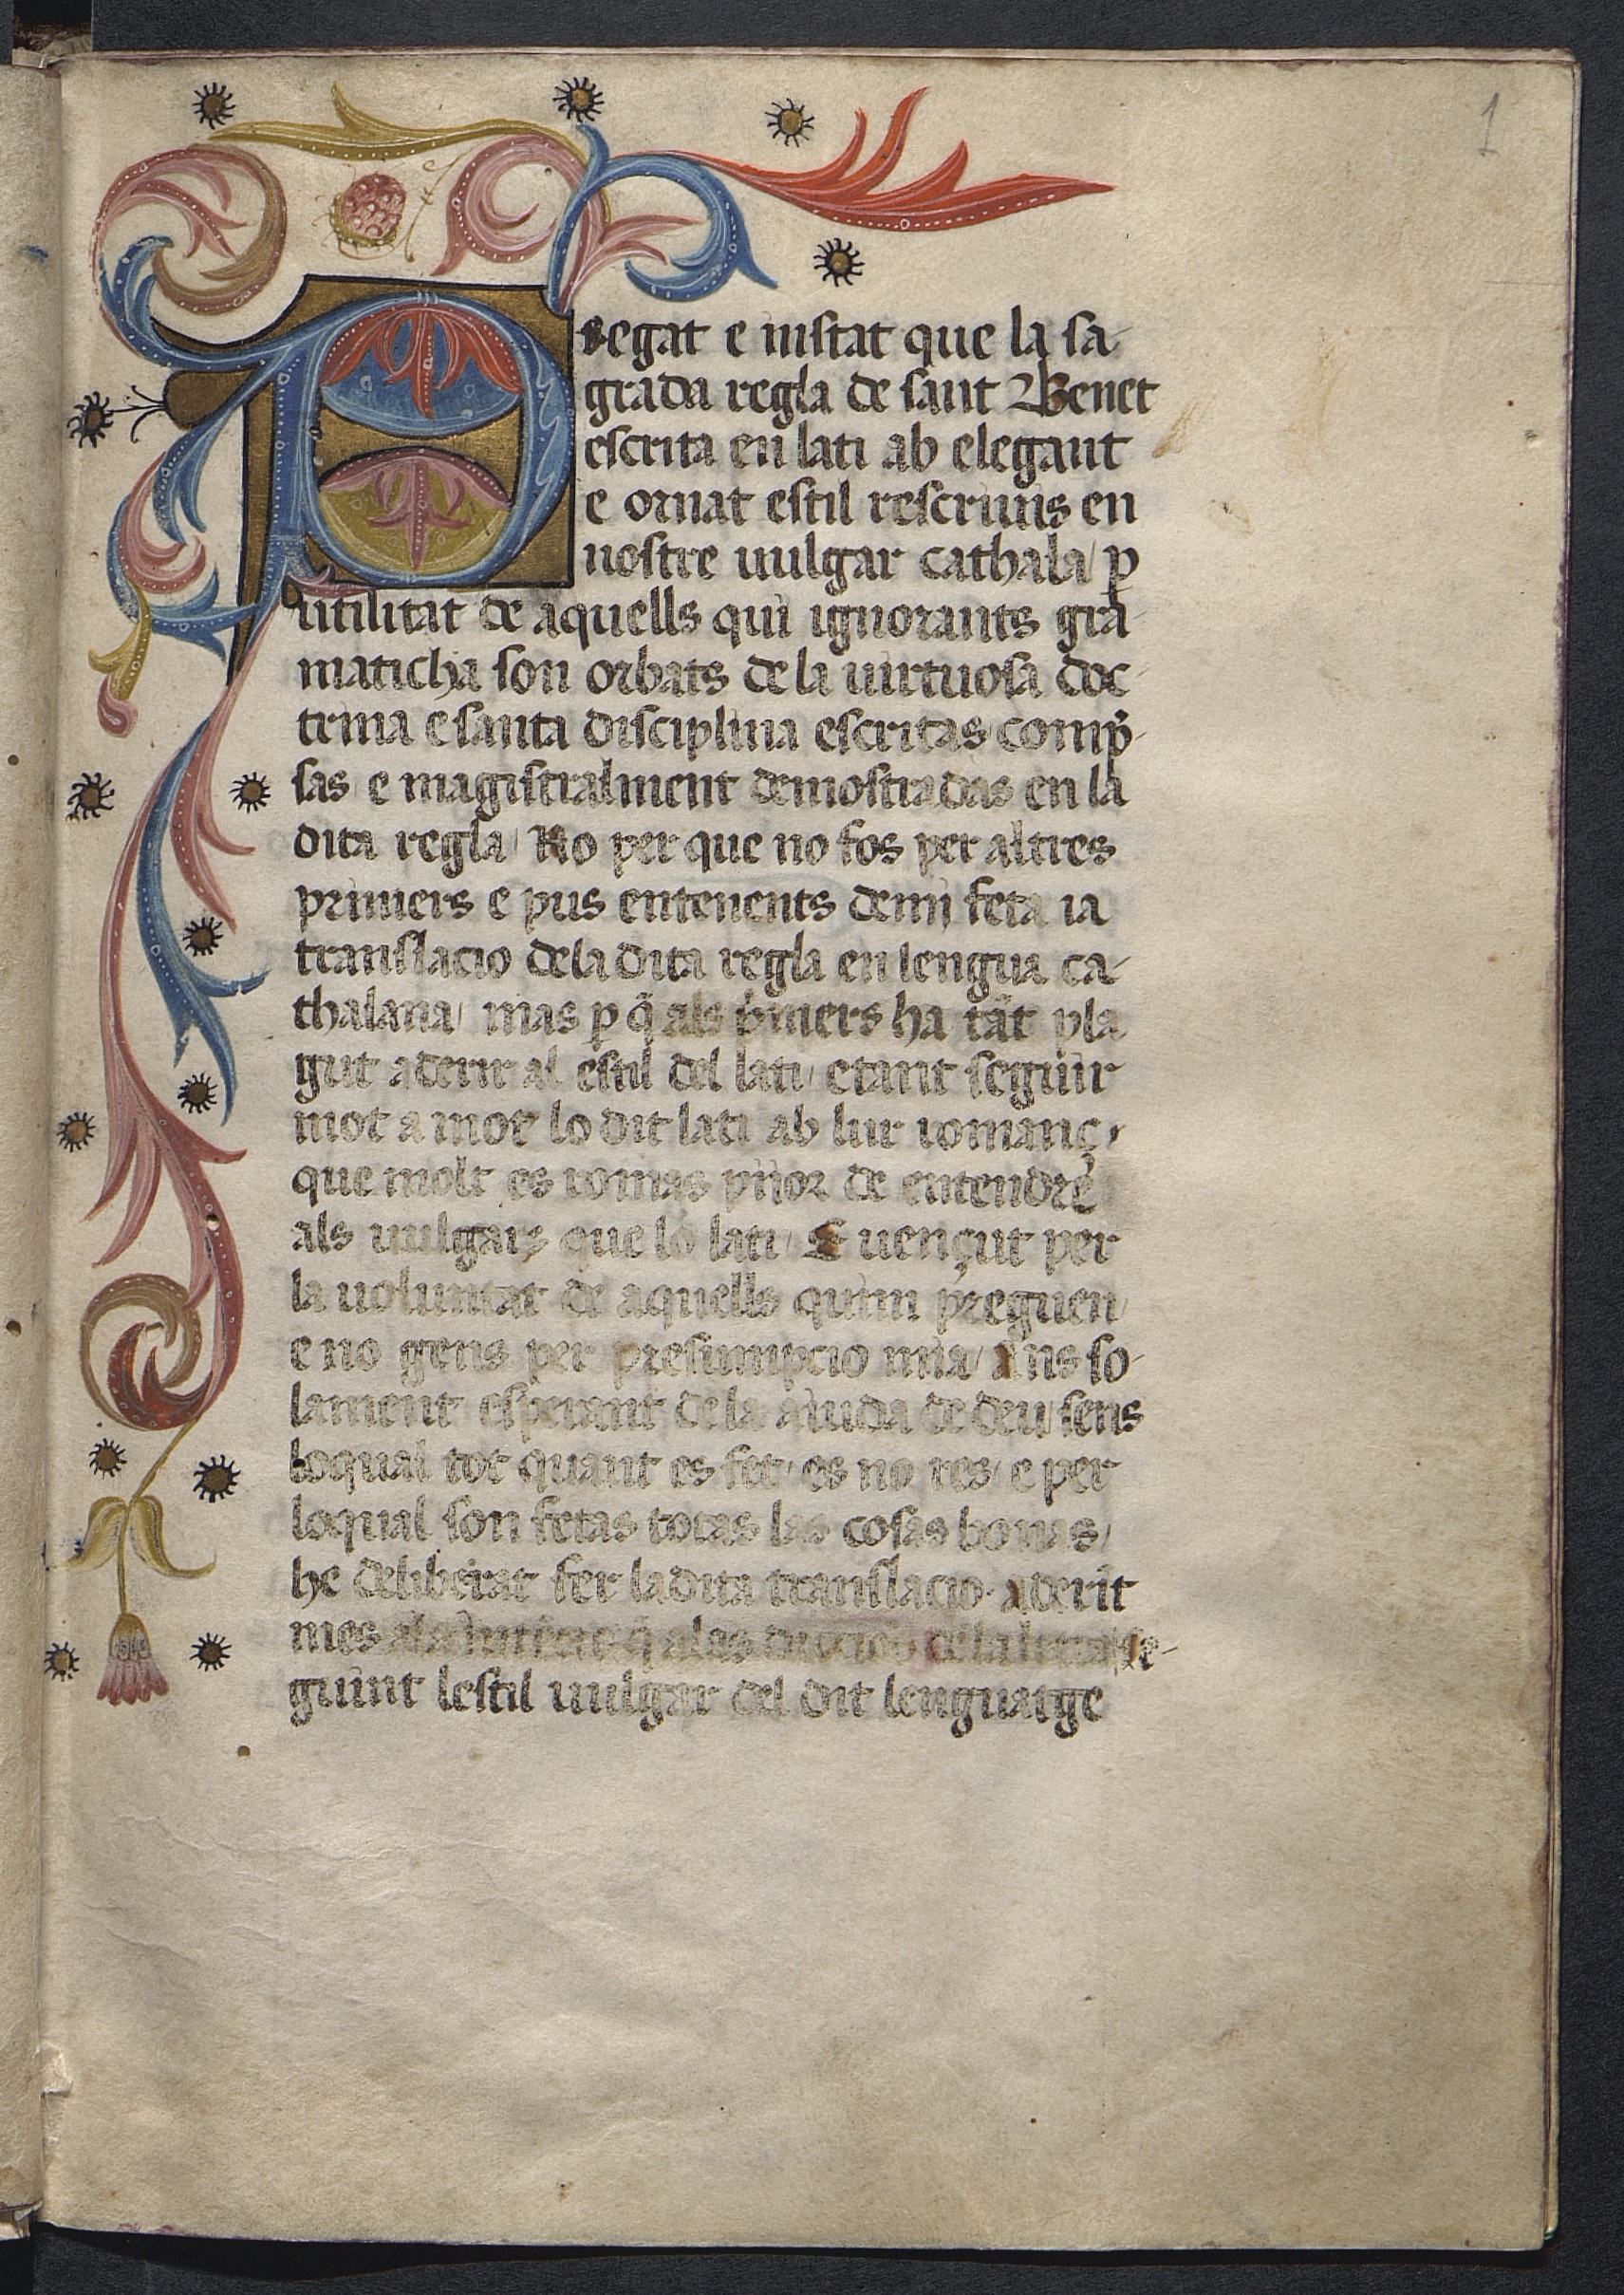 1
Pregat e instat que la sa-
grada regla de sant Benet
escrita en lati ab elegant
e ornat estil rescriuis en
nostre uulgar cathala/ ꝑ
utilitat de aquells qui ignorants gra-
maticha son orbats de la uirtuosa doc-
trina e santa disciplina escritas/ comp̄-
sas e magistralment demostradas en la
dita regla/ No per que no fos per altres
primers e pus entenents de mi feta ia
translacio de la dita regla en lengua ca-
thalana/ mas ꝑ q̄ als p̄mers ha tāt pla
gut aderir al estil del lati/ e tant seguir
mot a mot lo dit lati ab lur romanç/
que molt es romas piior de entendre
als uulgars que lo lati/ E uençut per
la uoluntat de aquells quim preguen/
e no gens per presumpcio mia/ Ans so-
lament esperant de la aiuda de deu/ sens
loqual tot quant es fet/ es no res/ e per
loqual son fetas totas las cosas bonas/
he deliberat fer la dita translacio. aderit
mes q̄ alas se-
guint lestil uulgar del dit lenguatge